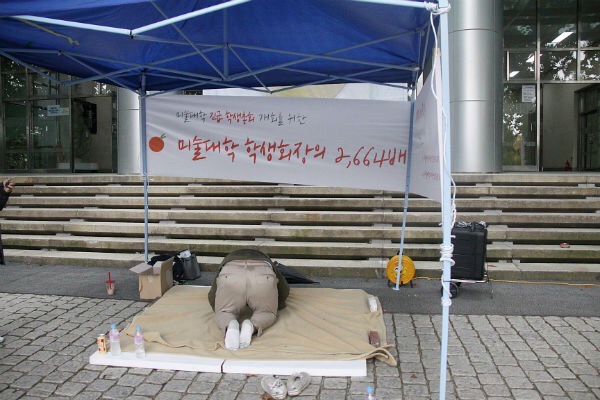 미술대학 긴급 학생총회 개회를 위한
미술대학 학생회장의 2,664배